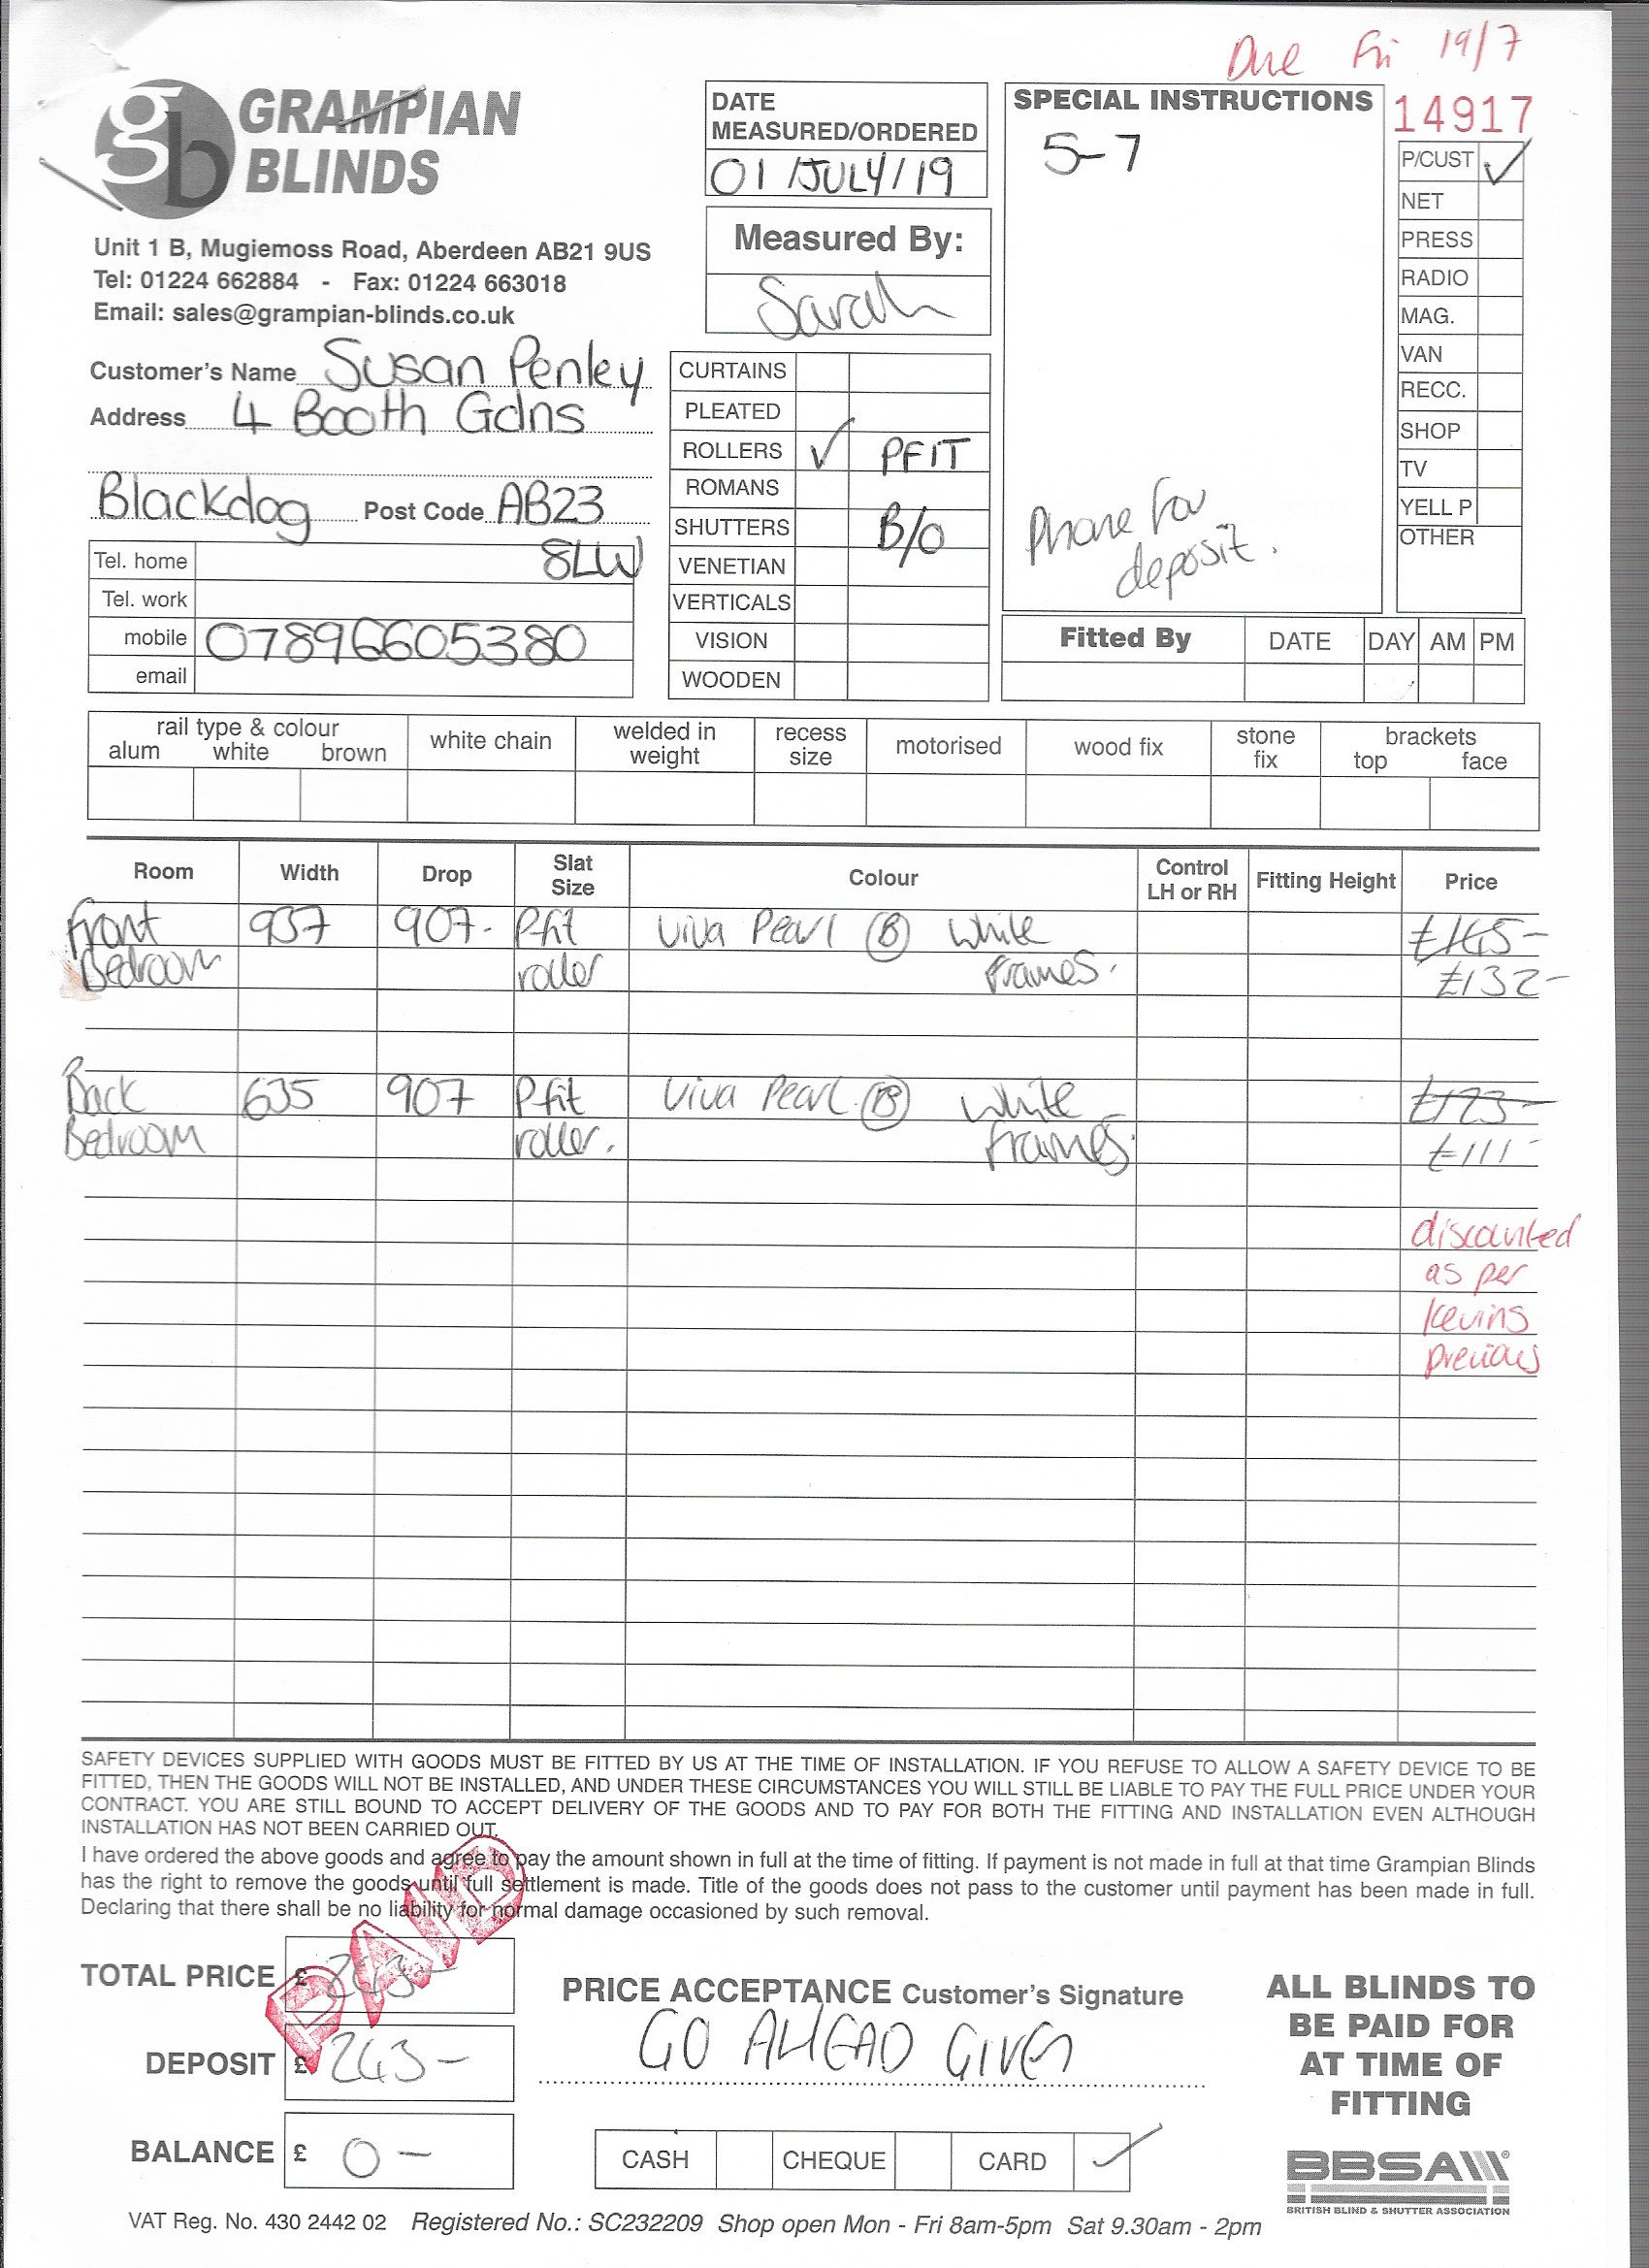 Due Fri 19/7
gb GRAMPIAN BLINDS
Unit 1 B, Mugiemoss Road, Aberdeen AB21 9US
Tel: 01224 662884 - Fax: 01224 663018
Email: sales@grampian-blinds.co.uk
Customer's Name Susan Penley
Address 4 Booth Gdns
Blackdog Post Code AB23 8LW
Tel. home
Tel. work
mobile 07896605380
email
DATE MEASURED/ORDERED
01/JULY/19
Measured By:
Sarah
CURTAINS
PLEATED
ROLLERS ✓ PFIT
ROMANS
SHUTTERS B/O
VENETIAN
VERTICALS
VISION
WOODEN
SPECIAL INSTRUCTIONS
5-7
Phone for
deposit.
14917
P/CUST ✓
NET
PRESS
RADIO
MAG.
VAN
RECC.
SHOP
TV
YELL P
OTHER
Fitted By DATE DAY AM PM
rail type & colour
alum white brown
white chain
welded in weight
recess size
motorised
wood fix
stone fix
brackets
top face
Room Width Drop Slat Size Colour Control LH or RH Fitting Height Price
Front 937 907- P-fit Viva Pearl (B) White £145-
Bedroom roller frames. £132-
Back 635 907 P-fit Viva Pearl (B) White £123-
Bedroom roller. frames. £111-
discounted
as per
Kevins
previous
SAFETY DEVICES SUPPLIED WITH GOODS MUST BE FITTED BY US AT THE TIME OF INSTALLATION. IF YOU REFUSE TO ALLOW A SAFETY DEVICE TO BE
FITTED, THEN THE GOODS WILL NOT BE INSTALLED, AND UNDER THESE CIRCUMSTANCES YOU WILL STILL BE LIABLE TO PAY THE FULL PRICE UNDER YOUR
CONTRACT. YOU ARE STILL BOUND TO ACCEPT DELIVERY OF THE GOODS AND TO PAY FOR BOTH THE FITTING AND INSTALLATION EVEN ALTHOUGH
INSTALLATION HAS NOT BEEN CARRIED OUT.
I have ordered the above goods and agree to pay the amount shown in full at the time of fitting. If payment is not made in full at that time Grampian Blinds
has the right to remove the goods until full settlement is made. Title of the goods does not pass to the customer until payment has been made in full.
Declaring that there shall be no liability for normal damage occasioned by such removal.
PAID
TOTAL PRICE £ 243-
DEPOSIT £ 243-
BALANCE £ 0-
PRICE ACCEPTANCE Customer's Signature
GO AHEAD GIVEN
CASH CHEQUE CARD ✓
ALL BLINDS TO
BE PAID FOR
AT TIME OF
FITTING
BBSA
BRITISH BLIND & SHUTTER ASSOCIATION
VAT Reg. No. 430 2442 02 Registered No.: SC232209 Shop open Mon - Fri 8am-5pm Sat 9.30am - 2pm